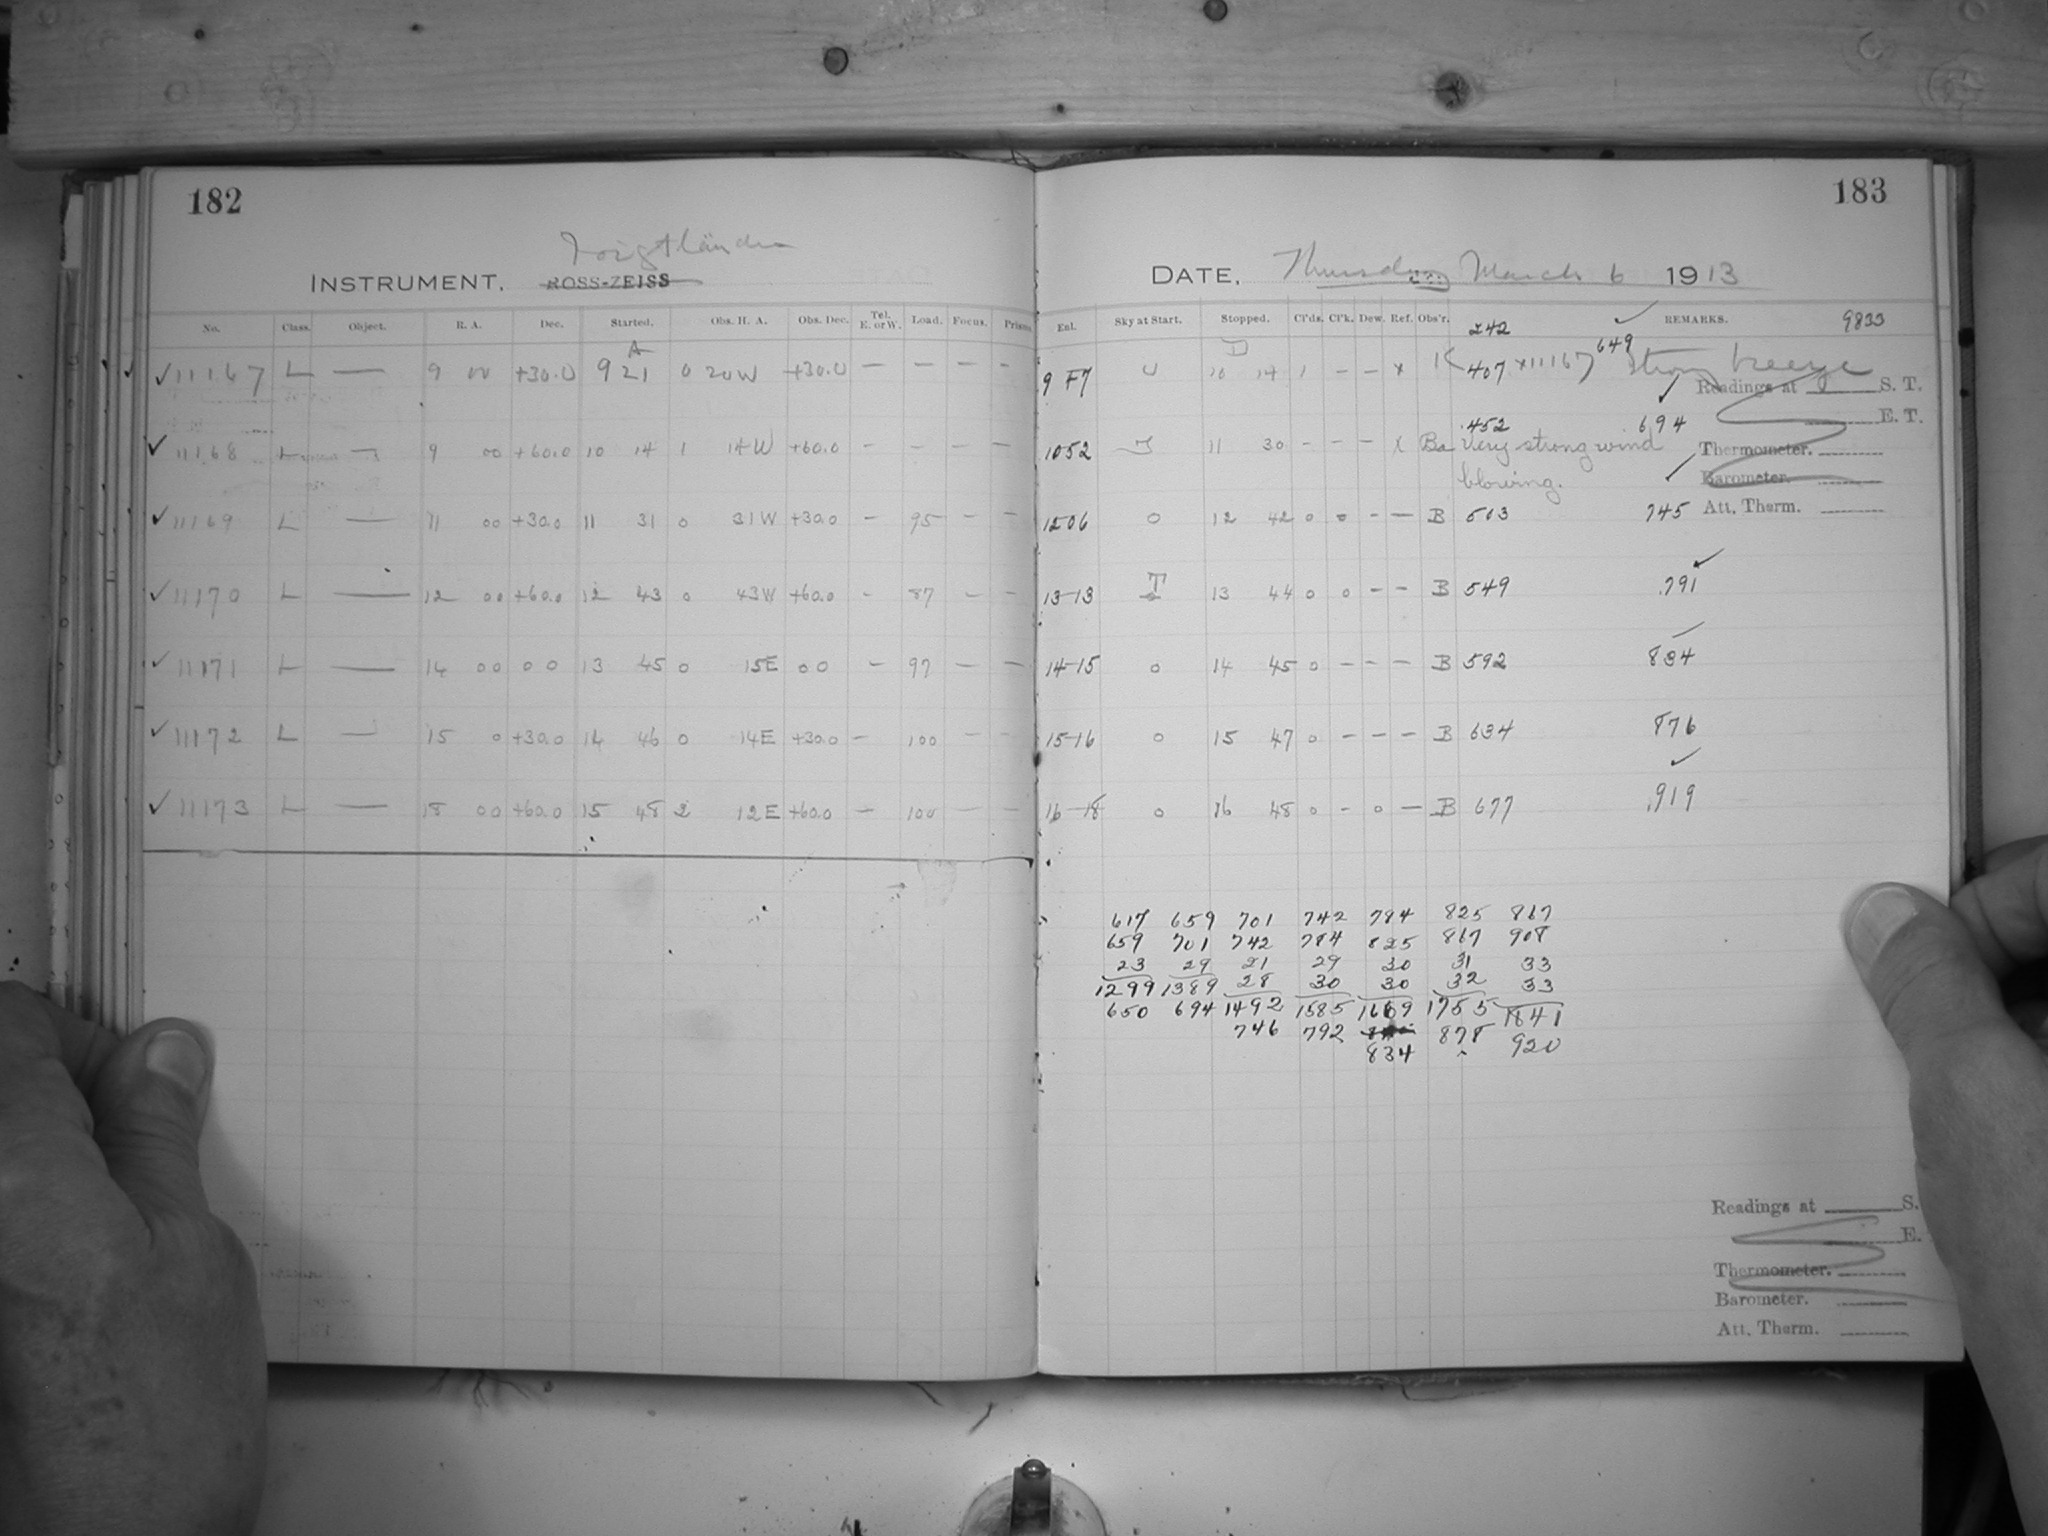 182
183
Voigtländer
INSTRUMENT. ROSS-ZEISS
DATE, Thursday March 6 1913
No. Class. Object. R. A. Dec. Started. Obs. H. A. Obs. Dec. Tel. E. or W. Load. Focus. Prisms.
Enl. Sky at Start. Stopped. Cl'ds. Cl'k. Dew. Ref. Obs'r. 242 REMARKS. 9833
✓ 11167 L — 9 00 +30.0 A 9 21 0 20W +30.0 — — — —
9 57 0 D 10 14 1 - - x K 407 x11167 649 Strong breeze
Readings at S. T.
E. T.
✓ 11168 L 9 00 +60.0 10 14 1 14W +60.0 - - - -
1052 11 30 - - - x Ba .452 Very strong wind 694
blowing.
Thermometer.
Barometer.
Att. Therm.
✓ 11169 L — 11 00 +30.0 11 31 0 31W +30.0 - 95 - -
1206 0 12 42 0 0 - - B 503 745
✓ 11170 L — 12 00 +60.0 12 43 0 43W +60.0 - 87 - -
13-13 T 13 44 0 0 - - B 549 .791
✓ 11171 L — 14 00 0 0 13 45 0 15E 0 0 - 97 - -
14-15 0 14 45 0 - - - B 592 834
✓ 11172 L 15 0 +30.0 14 46 0 14E +30.0 - 100 - -
15-16 0 15 47 0 - - - B 634 876
✓ 11173 L — 18 00 +60.0 15 48 2 12E +60.0 - 100 - -
16-18 0 16 48 0 - 0 - B 677 .919
617 659 701 742 784 825 867
659 701 742 784 825 867 908
23 29 21 29 30 31 33
1299 1389 28 30 30 32 33
650 694 1492 1585 1669 1755 1841
746 792 878 920
834
Readings at S.
E.
Thermometer.
Barometer.
Att. Therm.